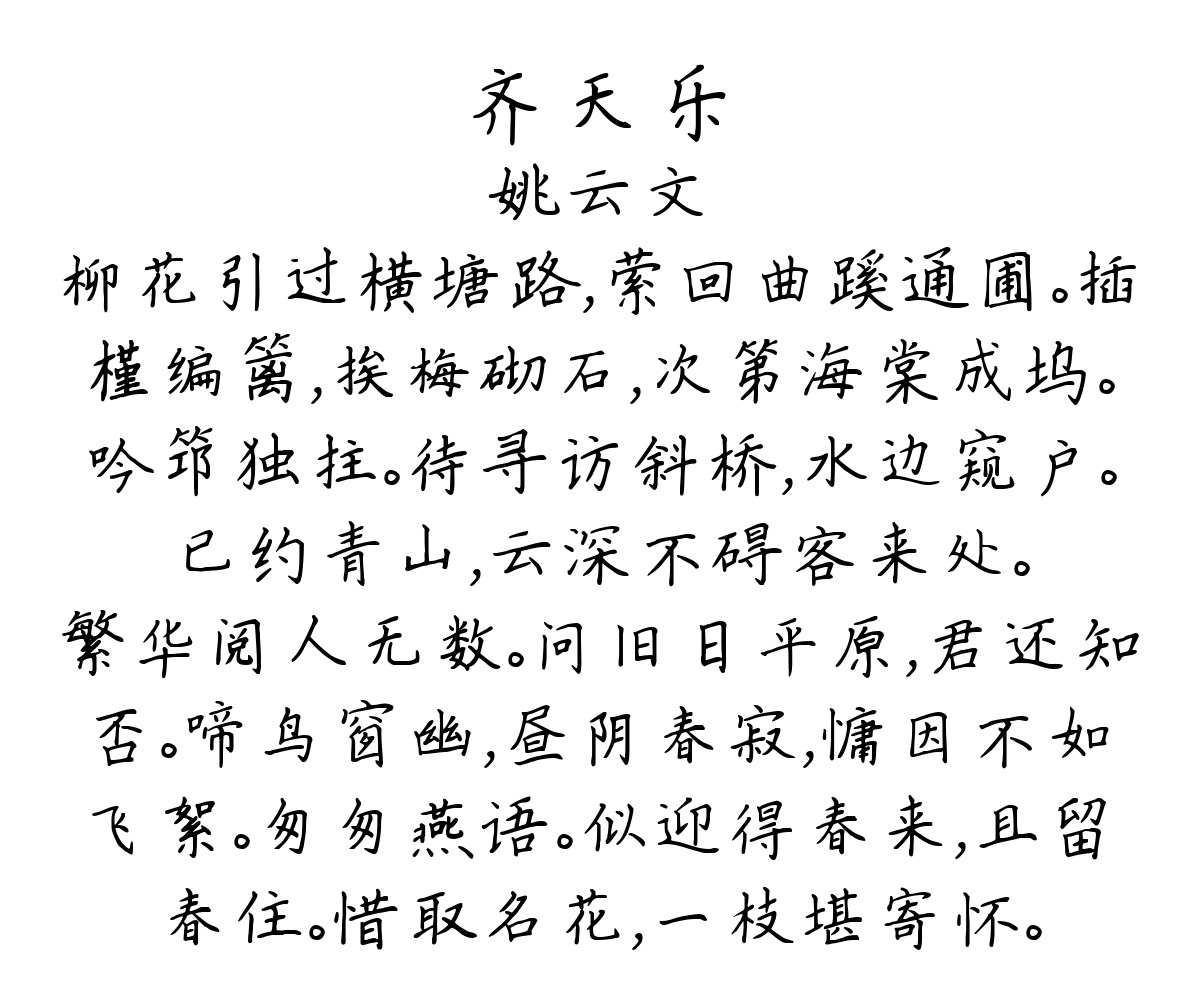 齐天乐
姚云文
柳花引过横塘路,萦回曲蹊通圃。插
槿编篱,挨梅砌石,次第海棠成坞。
吟筇独拄。待寻访斜桥,水边窥户。
已约青山,云深不碍客来处。
繁华阅人无数。问旧日平原,君还知
否。啼鸟窗幽,昼阴春寂,慵因不如
飞絮。匆匆燕语。似迎得春来,且留
春住。惜取名花,一枝堪寄怀。